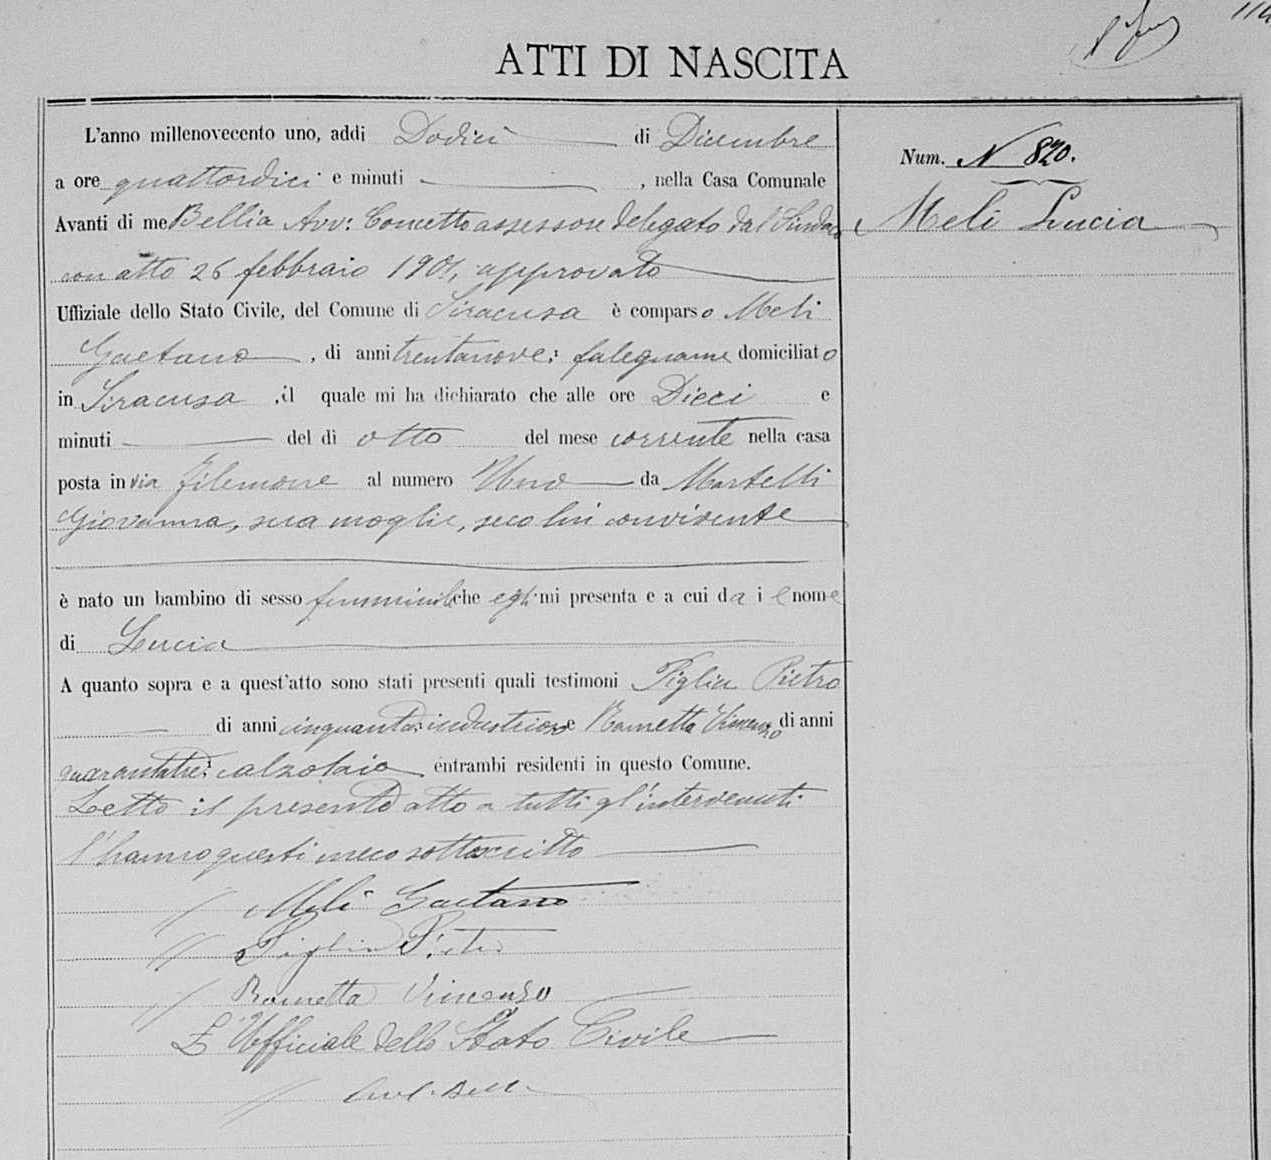 114
ATTI DI NASCITA
L'anno millenovecento uno, addi Dodici di Dicembre
a ore quattordici e minuti , nella Casa Comunale
Avanti di me Bellia Avv: Concetto assessore delegato dal Sindaco
con atto 26 febbraio 1901, approvato
Uffiziale dello Stato Civile, del Comune di Siracusa è comparso Meli
Gaetano , di anni trentanove, falegname domiciliato
in Siracusa , il quale mi ha dichiarato che alle ore Dieci e
minuti del di otto del mese corrente nella casa
posta in via Filemone al numero Uno da Martelli
Giovanna, sua moglie, seco lui convivente
è nato un bambino di sesso femminile che egli mi presenta e a cui da i l nome
di Lucia
A quanto sopra e a quest'atto sono stati presenti quali testimoni Piglia Pietro
di anni cinquanta, e Rametta Vincenzo di anni
quarantatre, calzolaio entrambi residenti in questo Comune.
Letto il presente atto a tutti gl'intervenuti
l'hanno questi meco sottoscritto
Meli Gaetano
Piglia Pietro
Rametta Vincenzo
L'Ufficiale dello Stato Civile
Num. N 820.
Meli Lucia